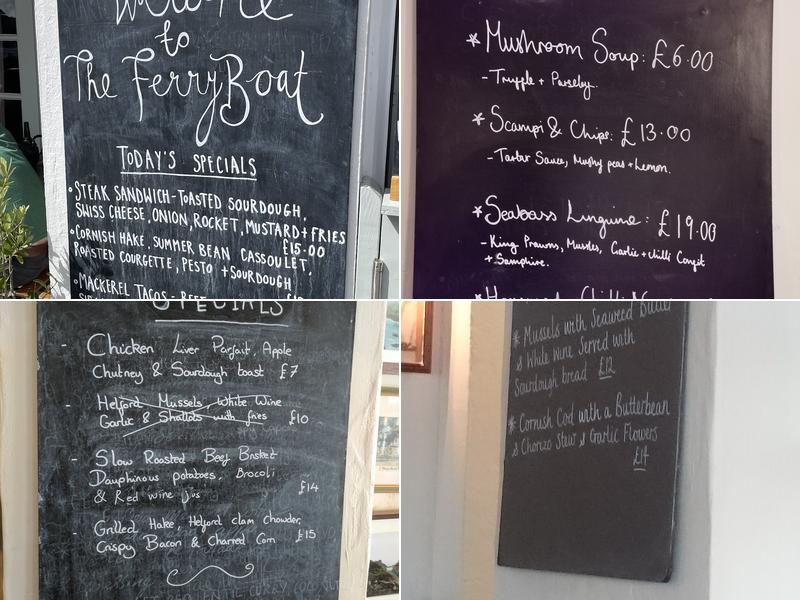 Welcome
to
The FerryBoat
TODAY'S SPECIALS
• STEAK SANDWICH - TOASTED SOURDOUGH,
SWISS CHEESE, ONION, ROCKET, MUSTARD + FRIES
£15.00
• CORNISH HAKE, SUMMER BEAN CASSOULET,
ROASTED COURGETTE, PESTO + SOURDOUGH
• MACKEREL TACOS -
* Mushroom Soup: £6.00
- Truffle + Parseley.
* Scampi & Chips: £13.00
- Tartar Sauce, Mushy peas + Lemon.
* Seabass Linguine: £19.00
- King Prawns, Mussles, Garlic + chilli Confit
+ Samphire.
SPECIALS
- Chicken Liver Parfait, Apple
Chutney & Sourdough toast £7
- Helford Mussels, White Wine
Garlic & Shallots with fries £10
- Slow Roasted Beef Brisket
Dauphinous potatoes, Brocoli
& Red wine jus £14
- Grilled Hake, Helford clam chowder,
Crispy Bacon & Charred Corn £15
* Mussels with Seaweed Butter
& White Wine Served with
Sourdough bread £12
* Cornish Cod with a Butterbean
& Chorizo Stew & Garlic Flowers
£14